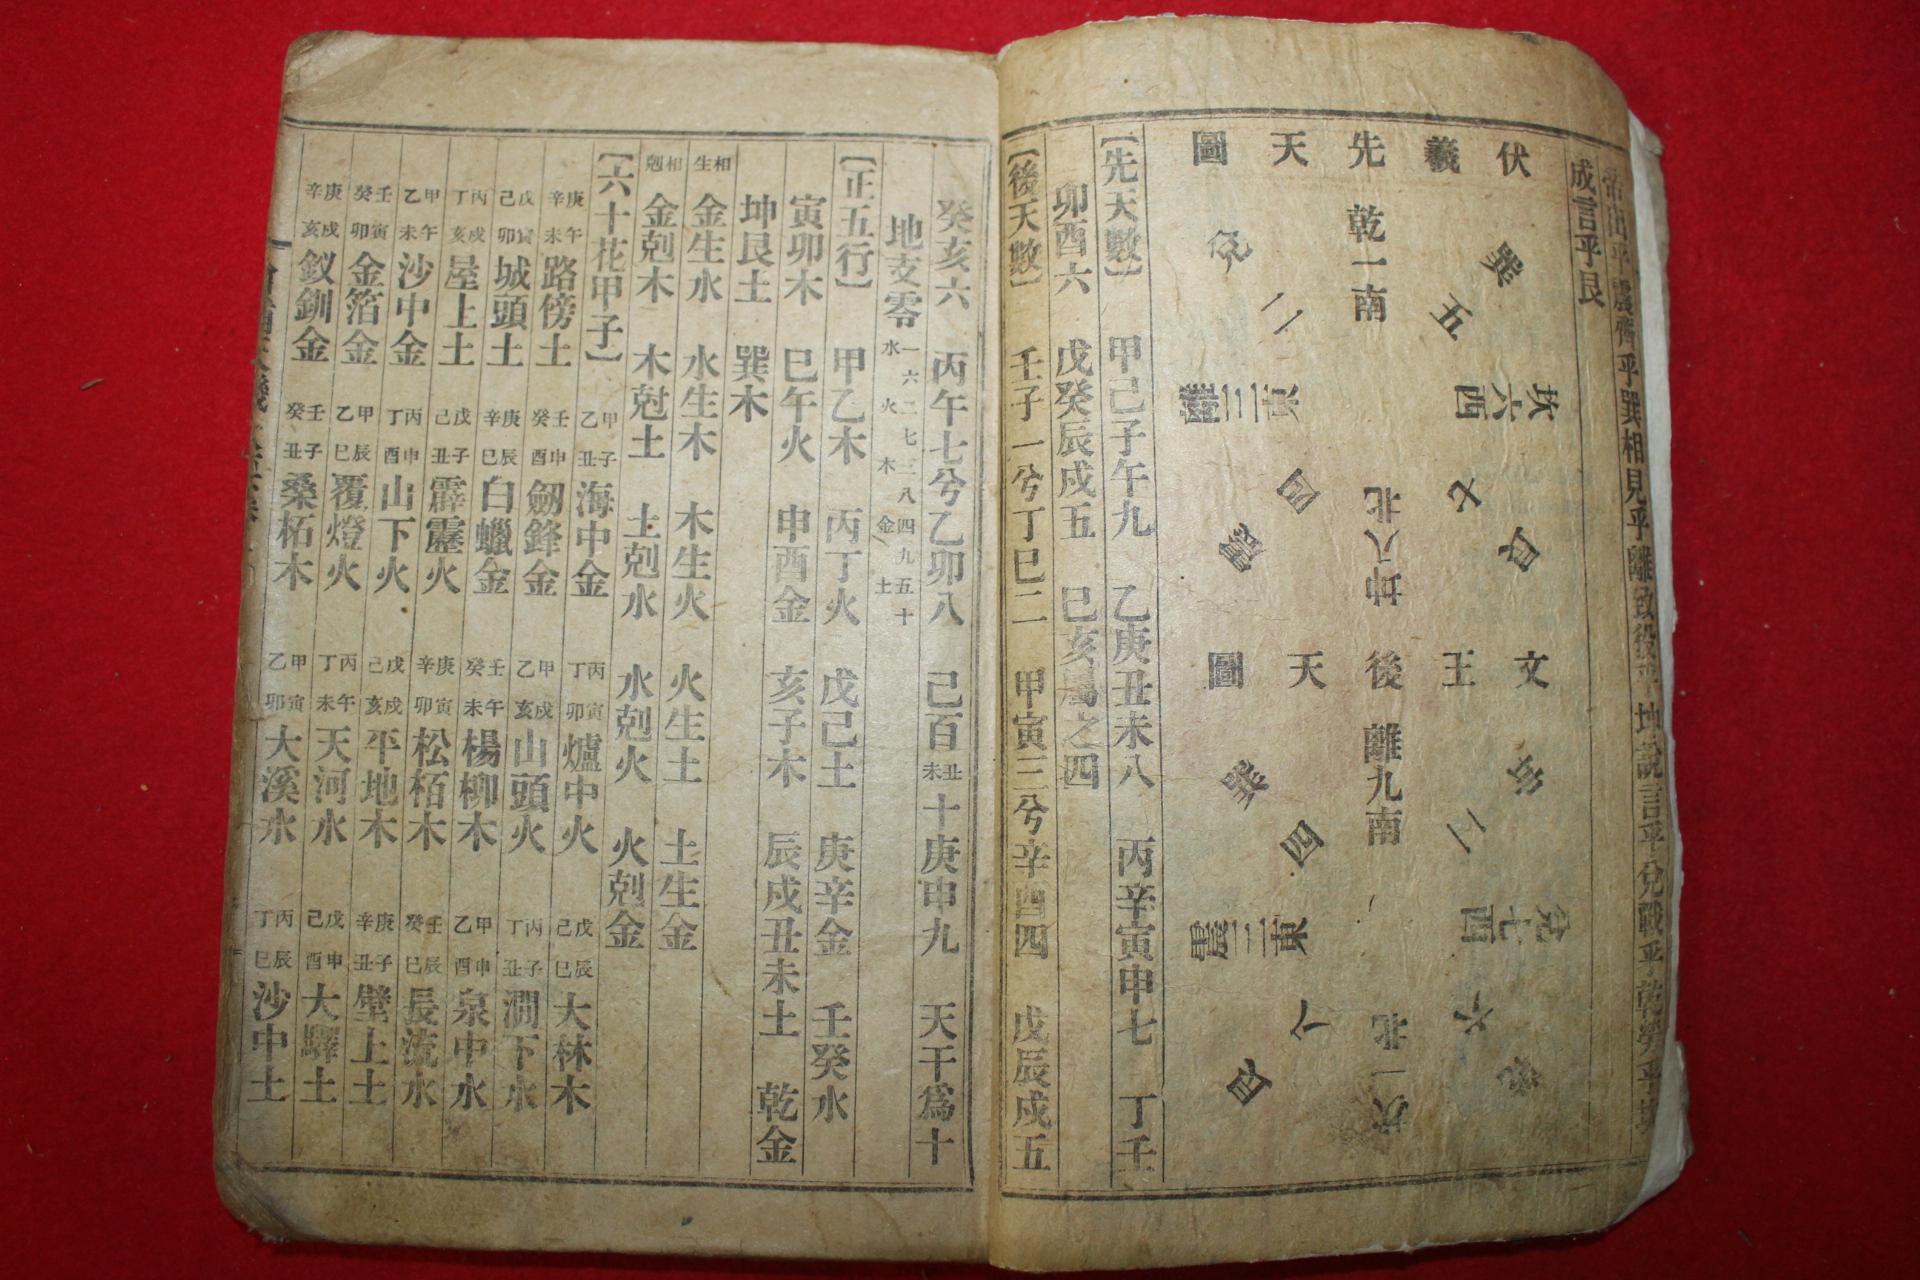 帝出乎震齊乎巽相見乎離致役乎地說言乎兌戰乎乾勞乎坎
成言乎艮
伏羲先天圖
乾一南
兌二
離三東
震四
巽五
坎六西
艮七
坤八北
文王後天圖
離九南
坤二
兌七西
乾六
坎一北
艮八
震三東
巽四
【先天數】 甲己子午九 乙庚丑未八 丙辛寅申七 丁壬
卯酉六 戊癸辰戌五 巳亥屬之四
【後天數】 壬子一兮丁巳二 甲寅三兮辛酉四 戊辰戌五
癸亥六 丙午七兮乙卯八 己百丑未十庚申九 天干爲十
地支零 一六水 二七火 三八木 四九金 五十土
【正五行】 甲乙木 丙丁火 戊己土 庚辛金 壬癸水
寅卯木 巳午火 申酉金 亥子木 辰戌丑未土 乾金
坤艮土 巽木
相生 金生水 水生木 木生火 火生土 土生金
相剋 金剋木 木尅土 土剋水 水剋火 火剋金
【六十花甲子】 甲子乙丑海中金 丙寅丁卯爐中火 戊辰己巳大林木
庚午辛未路傍土 壬申癸酉劒鋒金 甲戌乙亥山頭火 丙子丁丑澗下水
戊寅己卯城頭土 庚辰辛巳白蠟金 壬午癸未楊柳木 甲申乙酉泉中水
丙戌丁亥屋上土 戊子己丑霹靂火 庚寅辛卯松栢木 壬辰癸巳長流水
甲午乙未沙中金 丙申丁酉山下火 戊戌己亥平地木 庚子辛丑壁上土
壬寅癸卯金箔金 甲辰乙巳覆燈火 丙午丁未天河水 戊申己酉大驛土
庚戌辛亥釵釧金 壬子癸丑桑柘木 甲寅乙卯大溪水 丙辰丁巳沙中土